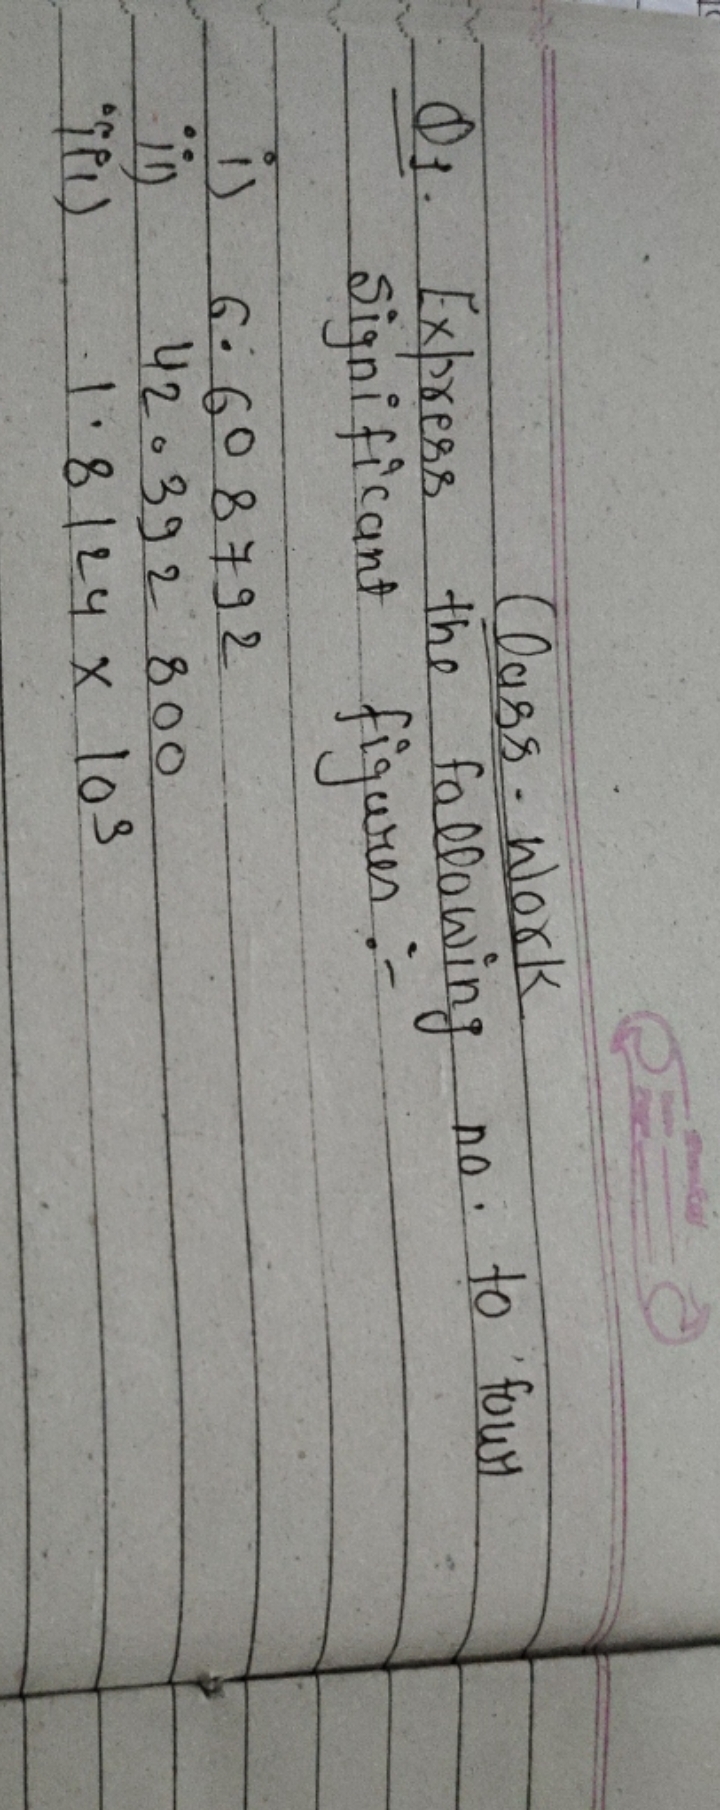 Class-Work
Q1. Express the following no. to four
significant figures :-
i) 6.608792
ii) 42.392800
iii) 1.8124 x 10³